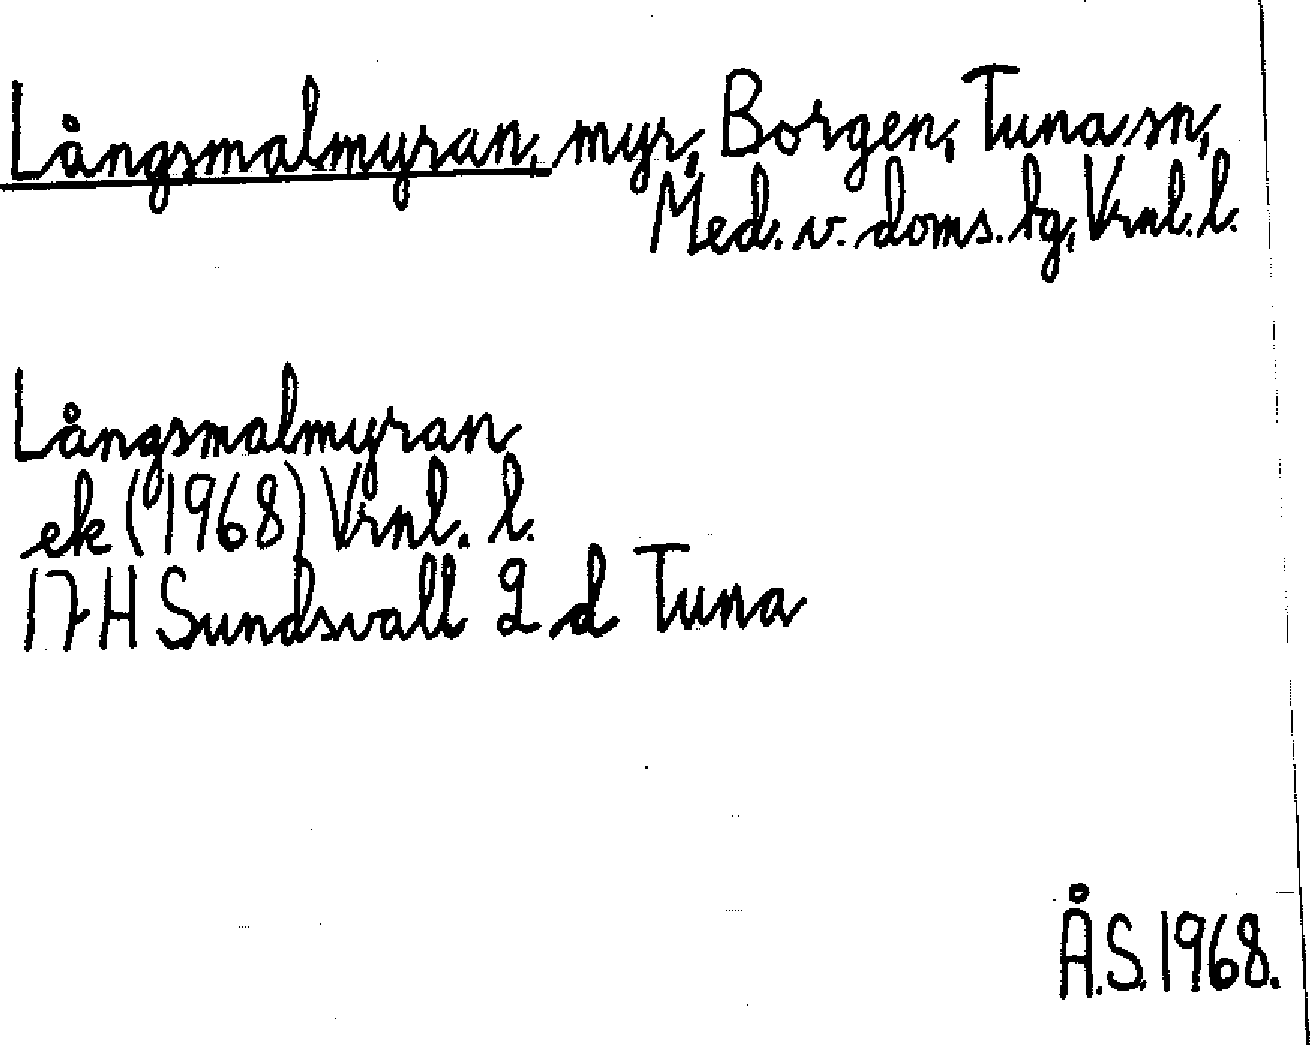 Långsmalmyran, myr, Borgen, Tuna sn,
Med. v. doms. lg, Vrnl. l.
Långsmalmyran
ek (1968) Vrnl. l.
17H Sundsvall 2 d Tuna
Å.S. 1968.